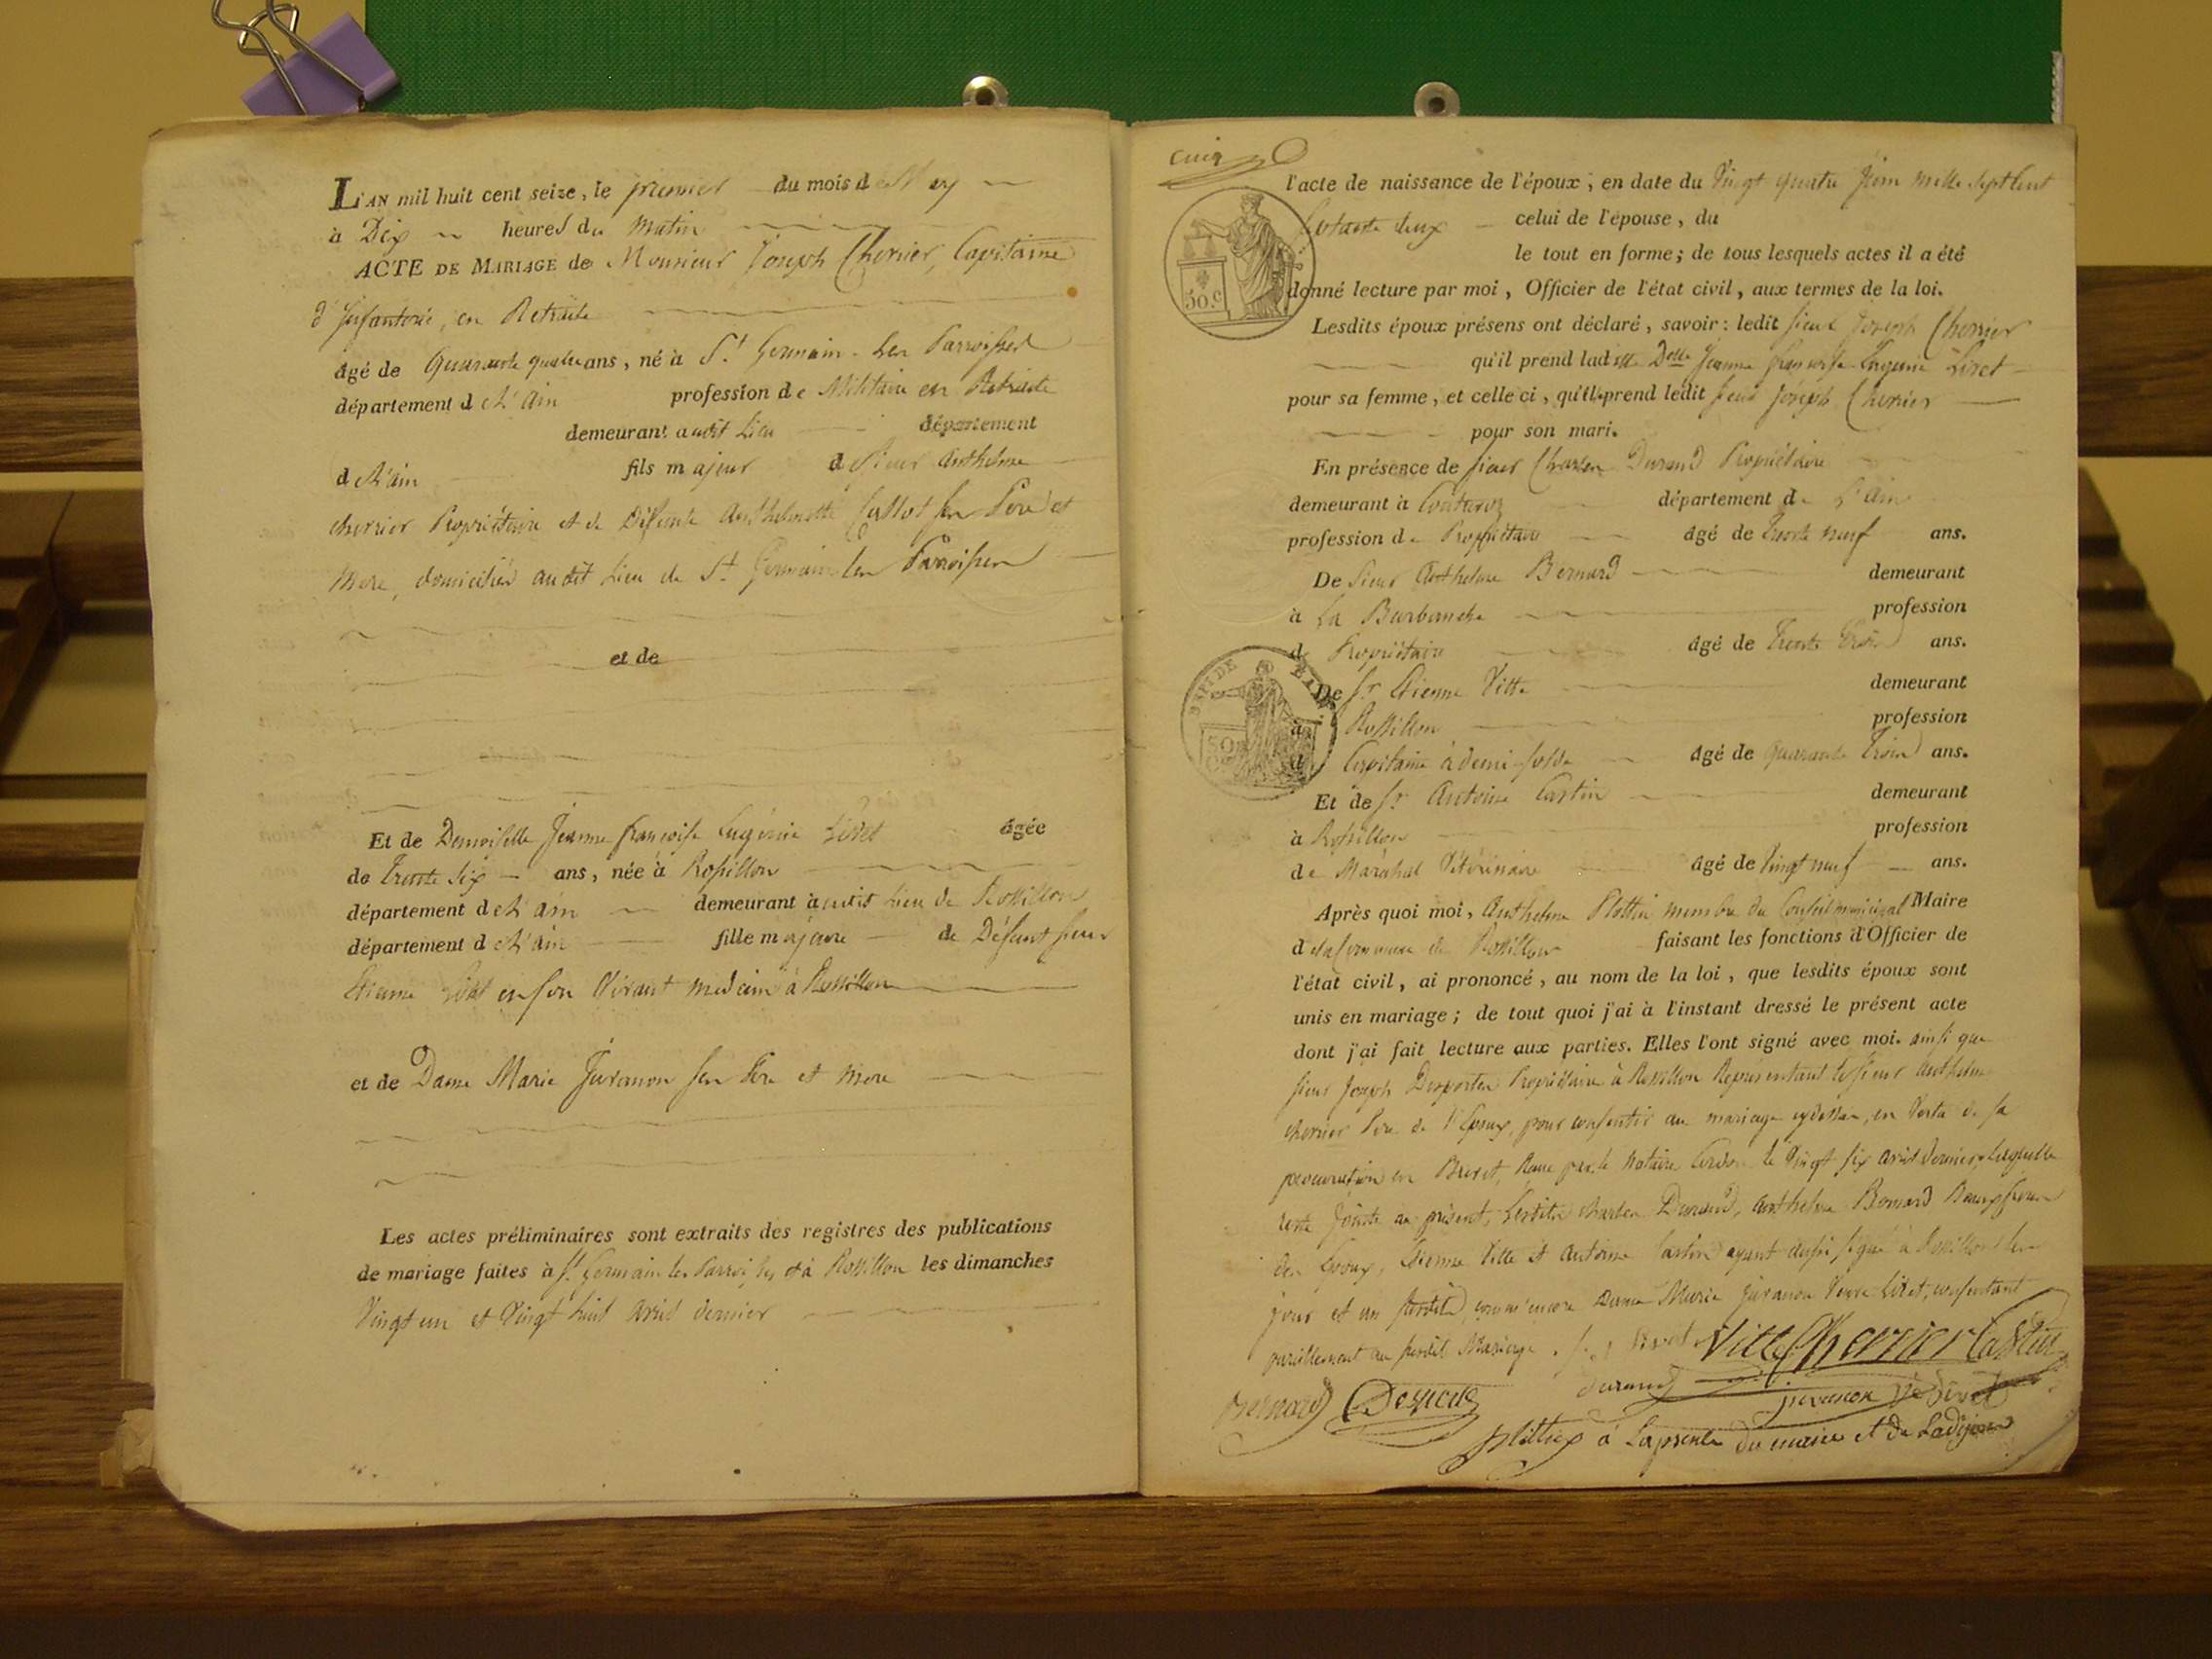 L'AN mil huit cent seize, le premier du mois de May
à Dix heures du matin
ACTE DE MARIAGE de Monsieur Joseph Cherrier, Capitaine
d'Infanterie, en Retraite
âgé de Quarante quatre ans, né à St. Germain-les Parroisses
département de L'ain profession de Militaire en Retraite
demeurant audit Lieu département
de L'ain fils majeur de Sieur Anthelme
cherrier Propriétaire et de Défunte Anthelmette ses Pere et
Mere, domiciliés audit Lieu de St. Germain les Parroisses
et de
Et de Demoiselle Jeanne françoise Eugénie Livet âgée
de Trente Six ans, née à Rossillon
département de L'ain demeurant audit Lieu de Rossillon
département de L'ain fille majeure de Défunt sieur
Etienne Livet en son Vivant medecin à Rossillon
et de Dame Marie Juvanon ses Pere et Mere
Les actes préliminaires sont extraits des registres des publications
de mariage faites à St. Germain les Parroisses et à Rossillon les dimanches
Vingt un et Vingt huit avril dernier
l'acte de naissance de l'époux, en date du Vingt quatre Juin mille Sept Cent
Septante deux celui de l'épouse, du
le tout en forme; de tous lesquels actes il a été
50.c
donné lecture par moi, Officier de l'état civil, aux termes de la loi.
Lesdits époux présens ont déclaré, savoir: ledit Sieur Joseph Cherrier
qu'il prend ladite Delle Jeanne françoise Eugenie Livet
pour sa femme, et celle ci, qu'elle prend ledit Sieur Joseph Cherrier
pour son mari.
En présence de Sieur Charles Durand Propriétaire
demeurant à département de L'ain
profession de Propriétaire âgé de Trente neuf ans.
De Sieur Anthelme Bernard demeurant
à La Burbanche profession
de Propriétaire âgé de Trente Trois ans.
De Sr. Etienne Vitte demeurant
à Rossillon profession
de Capitaine à demi-solde âgé de quarante Trois ans.
Et de Sr. Antoine Castin demeurant
à Rossillon profession
de Maréchal Vétérinaire âgé de Vingt neuf ans.
Après quoi moi, Anthelme membre du Conseil municipal Maire
de la Commune de Rossillon faisant les fonctions d'Officier de
l'état civil, ai prononcé, au nom de la loi, que lesdits époux sont
unis en mariage; de tout quoi j'ai à l'instant dressé le présent acte
dont j'ai fait lecture aux parties. Elles l'ont signé avec moi. ainsi que
Sieur Joseph Desportes Propriétaire à Rossillon Représentant le Sieur Anthelme
cherrier Pere de l'Epoux, pour consentir au mariage cydessus, en Vertu de sa
procuration en Brevet, Reçue par le Notaire le Vingt six avril dernier, laquelle
reste Jointe au présent, Charles Durand, Anthelme Bernard
des Epoux, Etienne Vitte et Antoine Castin ayant aussi signé à Rossillon les
jour et an comme encore Dame Marie Juvanon Veuve Livet, consentant
pareillement au susdit Mariage. Livet Vitte Cherrier Castin
Bernard Durand juvanon ve Livet
à Laprente du maire et de Ladjoin